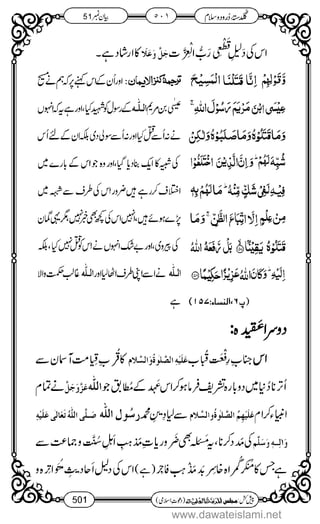 بیان نمبر 51
۵۰۱
گلدستۂ درود و سلام
اس کی دلیلِ قَطْعی رَبُّ الْعِزَّت جَلَّ وَعَلَا کا ارشاد ہے۔
وَّقَوْلِهِمْ اِنَّا قَتَلْنَا الْمَسِیْحَ
عِیْسَى ابْنَ مَرْیَمَ رَسُوْلَ اللّٰهِۚ
وَمَا قَتَلُوْهُ وَمَا صَلَبُوْهُ وَلٰكِنْ
شُبِّهَ لَهُمْؕ وَاِنَّ الَّذِیْنَ اخْتَلَفُوْا
فِیْهِ لَفِیْ شَكٍّ مِّنْهُؕ مَا لَهُمْ بِهٖ
مِنْ عِلْمٍ اِلَّا اتِّبَاعَ الظَّنِّۚ وَمَا
قَتَلُوْهُ یَقِیْنًۢا بَلْ رَّفَعَهُ اللّٰهُ
اِلَیْهِؕ وَكَانَ اللّٰهُ عَزِیْزًا حَكِیْمًا
(پ۶،النساء:۱۵۷)
ترجمۂ کنز الایمان: اور اُن کے اس کہنے پر کہ ہم نے مسیح
عیسٰی بن مریم اللہ کے رسول کو شہید کیا، اور ہے یہ کہ انہوں
نے نہ اسے قتل کیا اور نہ اسے سولی دی بلکہ ان کے لئے اُس
کی شبیہ کا ایک بنا دیا گیا، اور وہ جو اس کے بارے میں
اختلاف کر رہے ہیں ضرور اس کی طرف سے شبہہ میں
پڑے ہوئے ہیں، انہیں اس کی کچھ بھی خبر نہیں، مگر یہی گمان
کی پیروی، اور بے شک انہوں نے اس کو قتل نہیں کیا، بلکہ
اللہ نے اسے اپنی طرف اٹھالیا اور اللہ غالب حکمت والا
ہے
دوسرا عقیدہ:
اس جنابِ رِفْعَت قُباب عَلَیْہِ الصَّلٰوۃُ وَالسَّلَام کا قُربِ قِیامت آسمان سے
اُترنا دُنیا میں دوبارہ تشریف فرما ہو کر اس عہد کے مُطابق جو اللہ عَزَّوَجَلَّ نے تمام
انبیاء کرام عَلَیْہِمُ الصَّلٰوۃُ وَالسَّلَام سے لیا دینِ محمد رسُول اللہ صَلَّی اللہُ تَعَالٰی عَلَیْہِ
وَاٰلِہٖ وَسَلَّم کی مدد کرنا، یہ مسئلہ بھی ضروریاتِ مذہبِ اہلِ سُنَّت وجماعت سے
ہے جس کا مُنکِر گُمراہ خاسِر بد مذہب فاجر (ہے) اس کی دلیل احادیثِ مُتواتِرہ و
پیش کش: مجلس المدینۃ العلمیۃ (دعوتِ اسلامی)
501
www.dawateislami.net